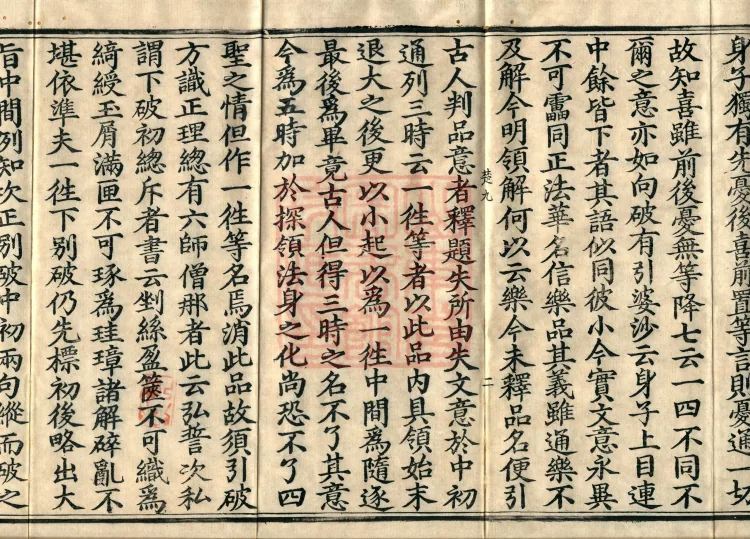 身子獨有先憂後喜前置等言則憂通一切
故知喜雖前後憂無等降七云一四不同不
爾之意亦如向破有引婆沙云身子上目連
中餘皆下者其語似同彼小今實文意永異
不可靁同正法華名信樂品其義雖通樂不
及解今明領解何以云樂今未釋品名便引
楚九 二
古人判品意者釋題失所由失文意於中初
通列三時云一徃等者以此品内具領始末
退大之後更以小起以為一徃中間為隨逐
最後為畢竟古人但得三時之名不了其意
今為五時加於探領法身之化尚恐不了四
聖之情但作一徃等名焉消此品故須引破
方識正理總有六師僧那者此云弘誓次私
謂下破初總斥者書云剉絲盈篋不可織為
綺綬玉屑滿匣不可琢為珪璋諸解碎亂不
堪依準夫一徃下別破仍先標初後略出大
旨中間例知次正別破中初兩句縱而破之